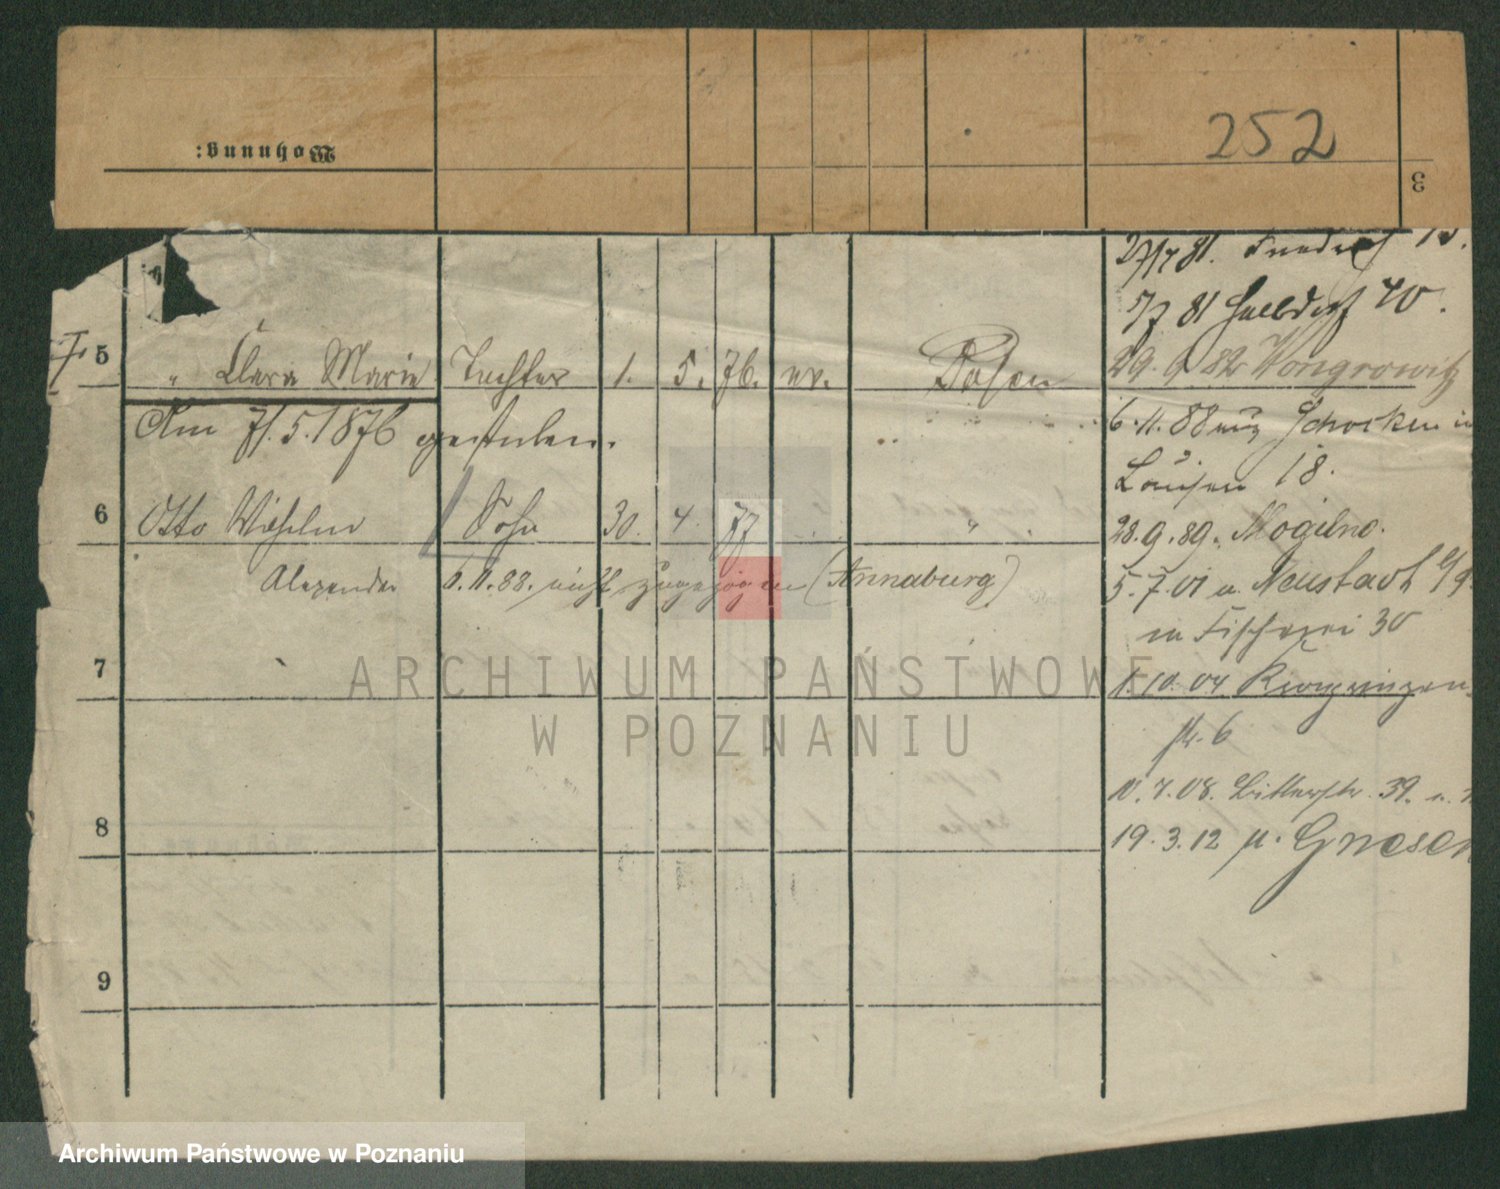 Wohnung:
252
3
27/7 81. Friedrich 15.
5/7 81 Halbdorf 40.
5 " Clara Marie Tochter 1. 5. 76. ev. Posen
29. 9 82 Wongrowitz
Am 7/.5.1876 gestorben.
6.11.88 aus Schocken in
Louisen 18.
6 Otto Wilhelm Sohn 30. 4. 77 "
28.9.89. Mogilno.
Alexander 6.11.88. nicht zugezogen (Annaburg)
5.7.01 a. Neustadt
in Fischerei 30
7
1.10.04
str. 6
10.7.08. Bitterstr. 39.
8
19.3.12 n. Gnesen
9
ARCHIWUM PAŃSTWOWE
W POZNANIU
Archiwum Państwowe w Poznaniu